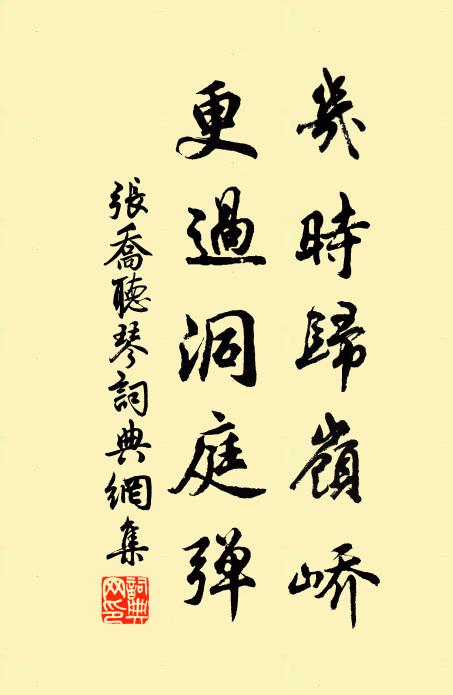 幾時歸嶺嶠
更過洞庭彈
張喬聽琴詞典網集
詞典网印